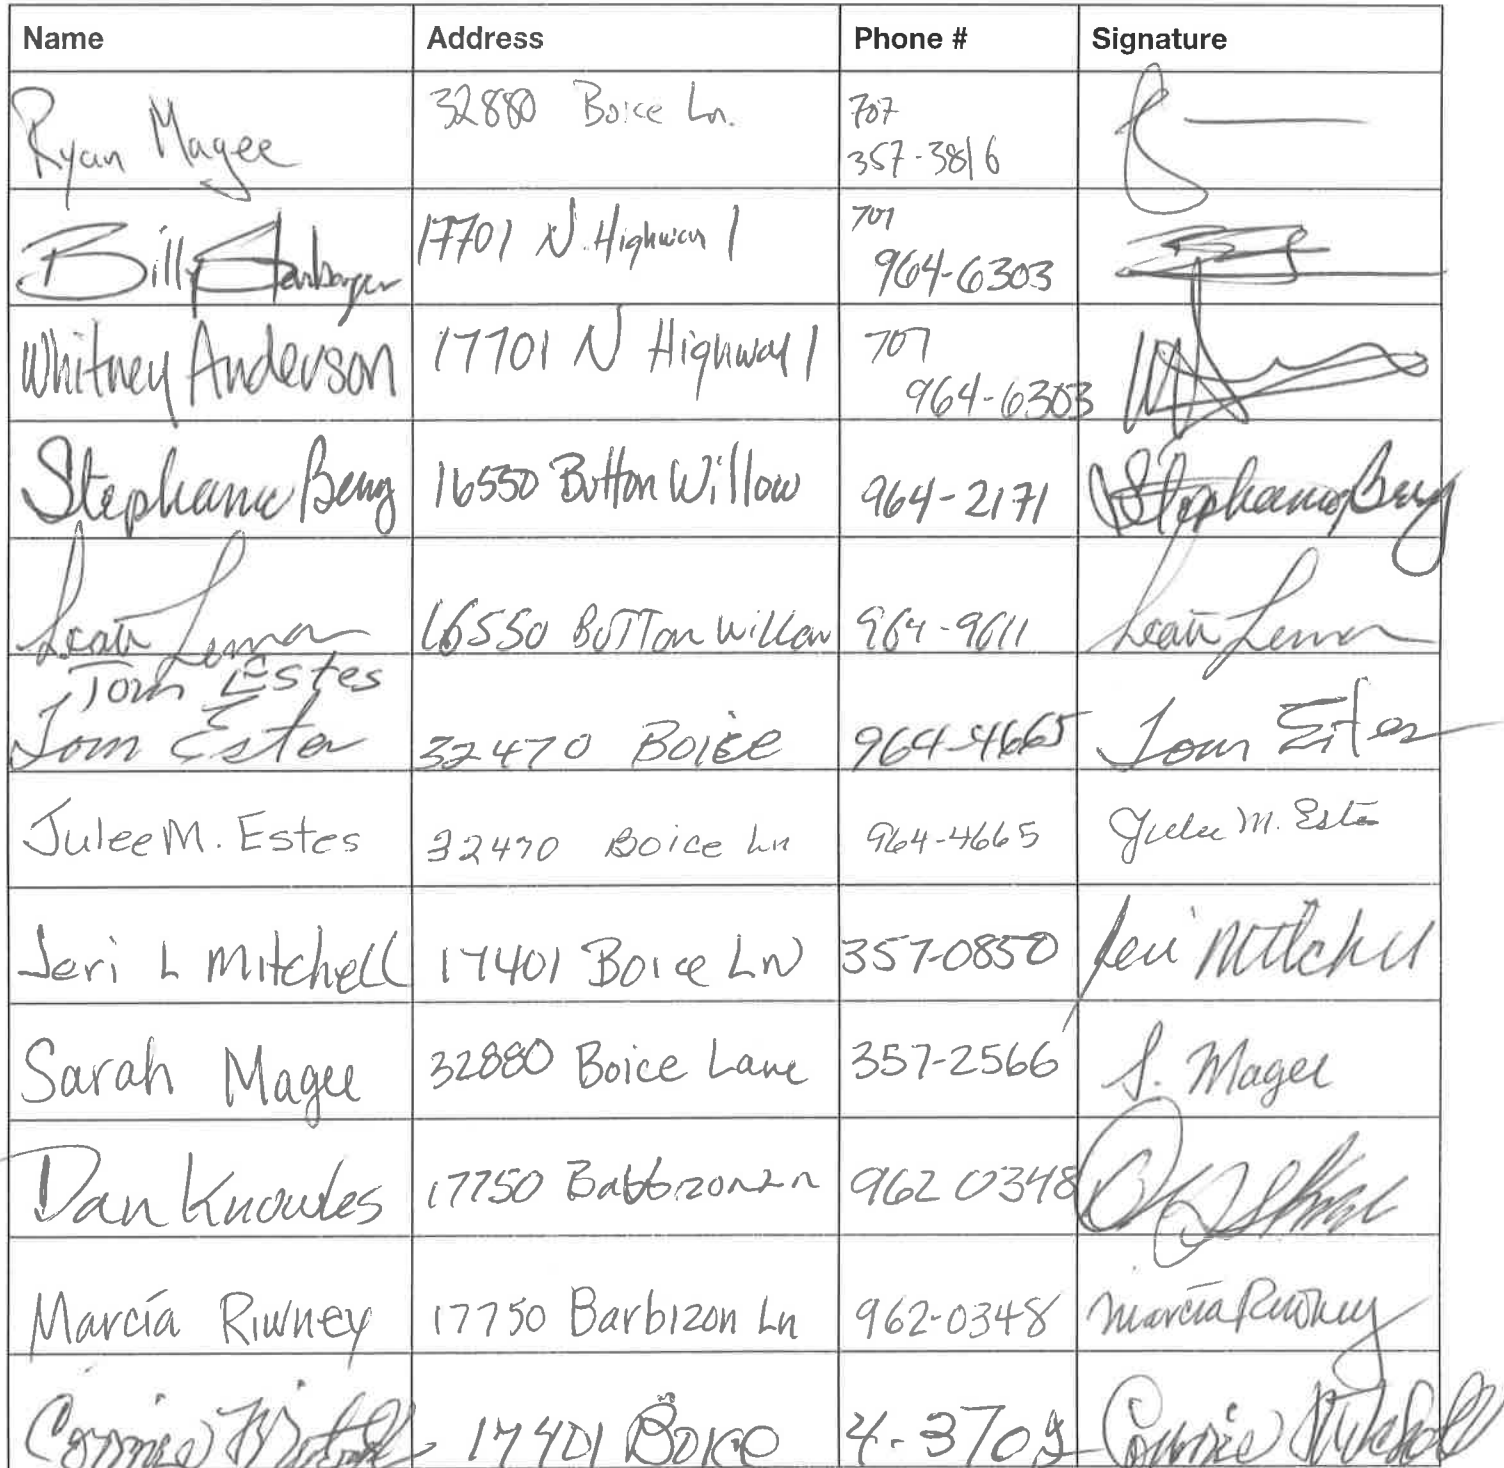 Name Address Phone # Signature
Ryan Magee 32880 Boice Ln. 707
357-3816
Billy 17701 N. Highway 1 707
964-6303
Whitney Anderson 17701 N Highway 1 707
964-6303
Stephanie Berg 16550 Button Willow 964-2171 Stephanie Berg
Lemon 16550 Button Willow 964-9611 Lemon
Tom Estes
Tom Estes 32470 Boice 964-4665 Tom Estes
Julee M. Estes 32470 Boice Ln 964-4665 Julee M. Estes
Jeri L Mitchell 17401 Boice LN 357-0850 Jeri Mitchell
Sarah Magee 32880 Boice Lane 357-2566 S. Magee
Dan Knowles 17750 Ln 962 0348
Marcia Riwney 17750 Barbizon Ln 962-0348 Marcia Riwney
Connie Mitchell 17401 Boice Connie Mitchell